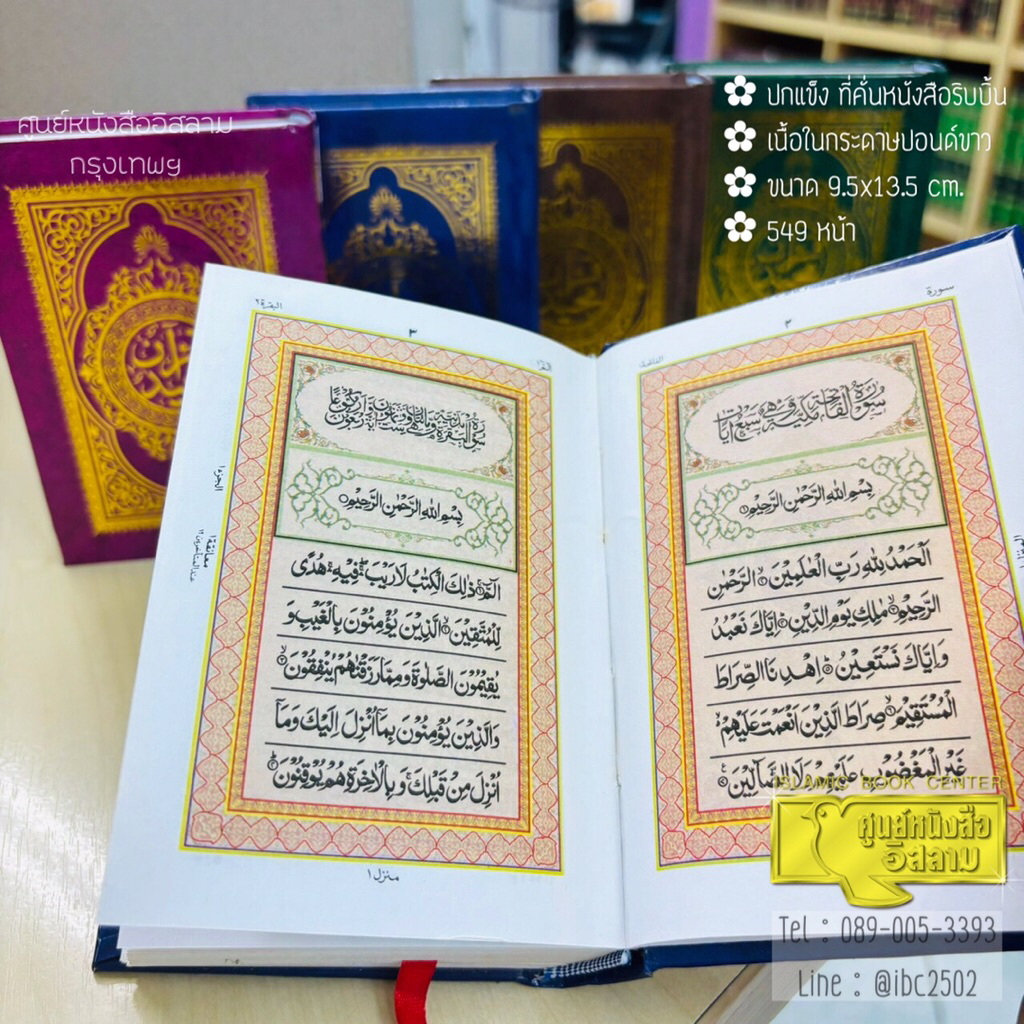 ศูนย์หนังสืออิสลาม
กรุงเทพฯ
ปกแข็ง ที่คั่นหนังสือริบบิ้น
เนื้อในกระดาษปอนด์ขาว
ขนาด 9.5x13.5 cm.
549 หน้า
سورة
٢
الفاتحة
سُوْرَةُ الْفَاتِحَةِ مَكِّيَّةٌ وَّهِيَ سَبْعُ اٰيَاتٍ
بِسْمِ اللهِ الرَّحْمٰنِ الرَّحِيْمِ
اَلْحَمْدُ لِلّٰهِ رَبِّ الْعٰلَمِيْنَ الرَّحْمٰنِ
الرَّحِيْمِ مٰلِكِ يَوْمِ الدِّيْنِ اِيَّاكَ نَعْبُدُ
وَاِيَّاكَ نَسْتَعِيْنُ اِهْدِنَا الصِّرَاطَ
الْمُسْتَقِيْمَ صِرَاطَ الَّذِيْنَ اَنْعَمْتَ عَلَيْهِمْ
غَيْرِ الْمَغْضُوْبِ عَلَيْهِمْ وَلَا الضَّآلِّيْنَ
البقرة ٢
٣
الجزء ١
معانقة ١
عند المتأخرين ١٢
بِسْمِ اللهِ الرَّحْمٰنِ الرَّحِيْمِ
الٓمّٓ ذٰلِكَ الْكِتٰبُ لَا رَيْبَ فِيْهِ هُدًى
لِّلْمُتَّقِيْنَ الَّذِيْنَ يُؤْمِنُوْنَ بِالْغَيْبِ وَ
يُقِيْمُوْنَ الصَّلٰوةَ وَمِمَّا رَزَقْنٰهُمْ يُنْفِقُوْنَ
وَالَّذِيْنَ يُؤْمِنُوْنَ بِمَآ اُنْزِلَ اِلَيْكَ وَمَآ
اُنْزِلَ مِنْ قَبْلِكَ وَبِالْاٰخِرَةِ هُمْ يُوْقِنُوْنَ
منزل ١
ISLAMIC BOOK CENTER
ศูนย์หนังสือ
อิสลาม
Tel : 089-005-3393
Line : @ibc2502